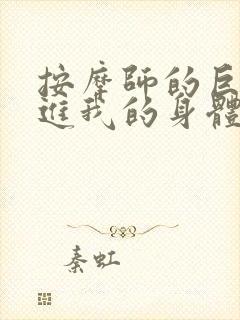 按摩師的巨
進我的身體
秦虹